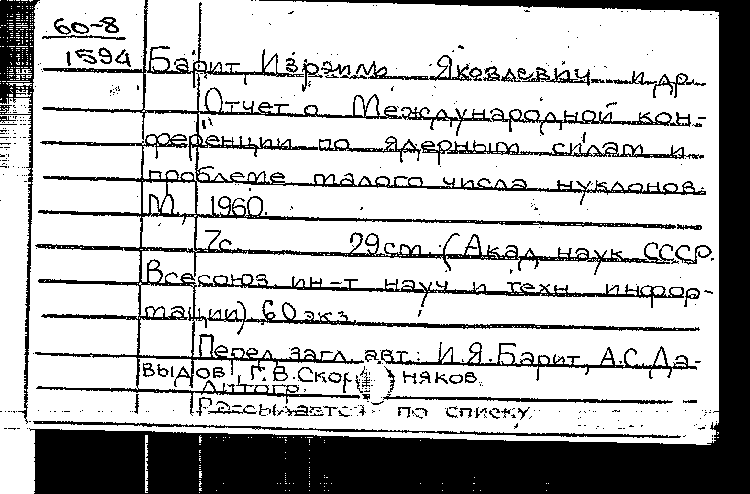 60-8
1594
Барит, Израиль Яковлевич и др.
Отчет о Международной кон-
ференции по ядерным силам и
проблеме малого числа нуклонов.
М., 1960.
7с. 29см. (Акад. наук СССР.
Всесоюз. ин-т науч. и техн. инфор-
мации). 60 экз.
Перед загл. авт.: И.Я.Барит, А.С.Да-
выдов, Г.В.Скорняков.
Литогр.
Рассылается по списку.